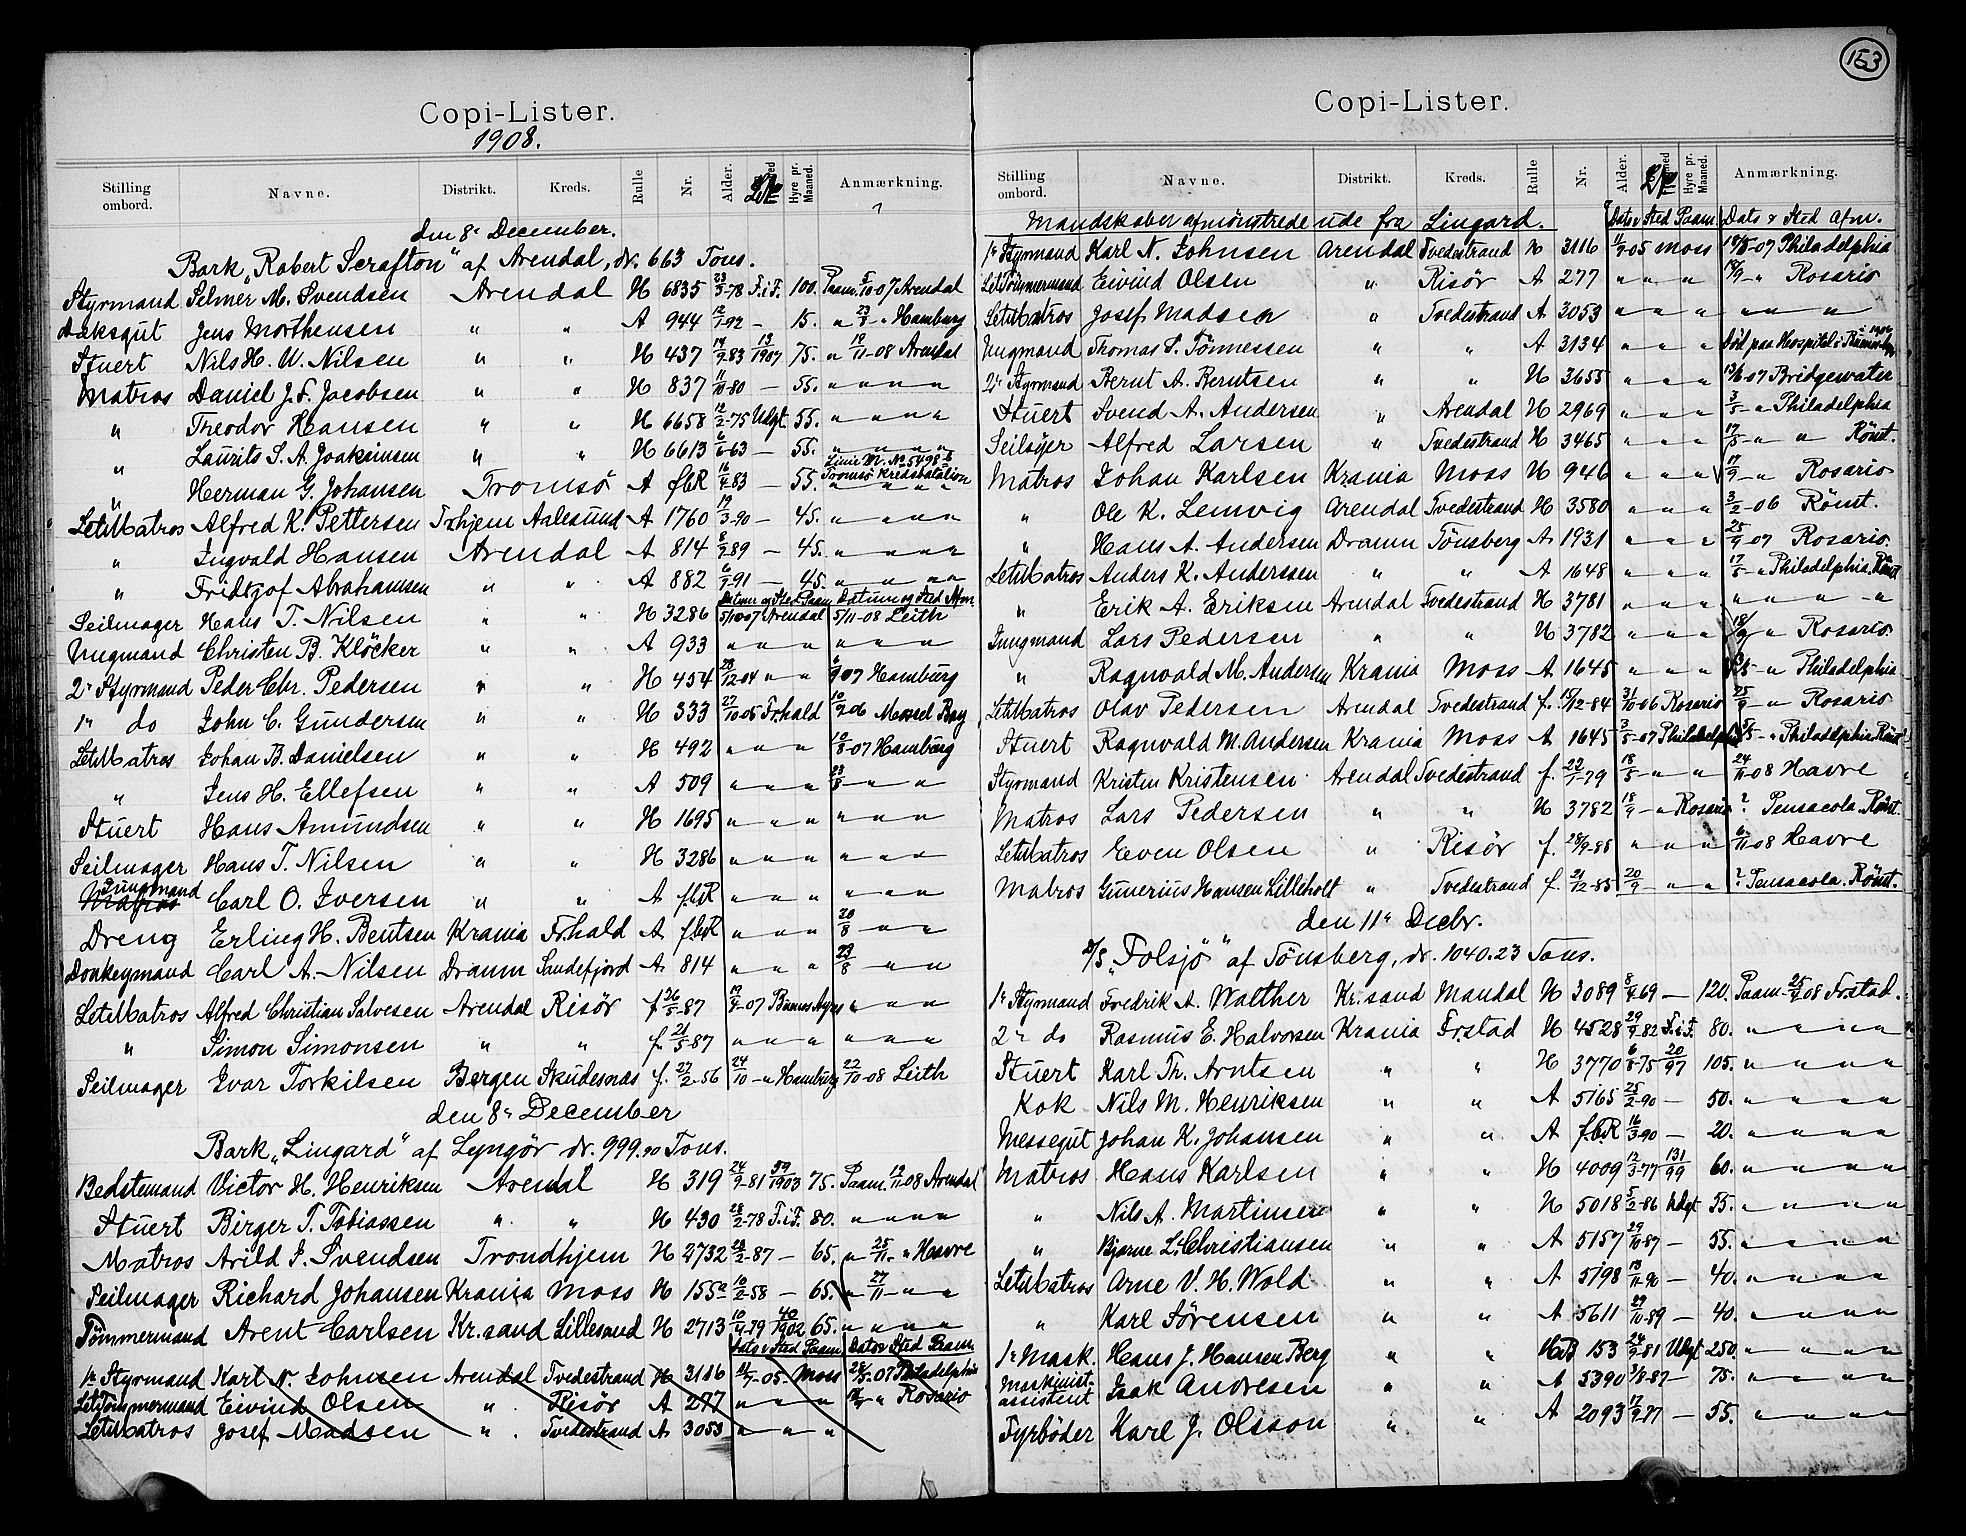 Copi-Lister.
1908.
Stilling ombord. Navne. Distrikt. Kreds. Rulle Nr. Alder. Hyre pr. Maaned. Anmærkning.
den 8e December.
Bark „Robert Scrafton" af Arendal, dr. 663 Tons.
Styrmand Selmer M. Svendsen Arendal H 6835 23/3-78 F.i.F. 100. Paam. 5/10-07 Arendal
Dæksgut Jens Morthensen " " A 944 12/1-92 — 15. " 23/8 - " Hamburg
Stuert Nils H. W. Nilsen " " H 437 14/9-83 13/1907 75. " 19/11-08 Arendal
Matros Daniel J. F. Jacobsen " " H 837 11/10-80 — 55. " " " "
" Theodor Hansen " " H 6658 12/2-75 Udgt 55. " " " "
" Laurits S. A. Joakimsen " " H 6613 6/6-63 — 55. " " " "
" Herman G. Johansen Tromsö A f.b.R 16/4-83 — 55. Linie M. No 5498 b Tromsö Kredsbatalion
LetMatros Alfred K. Pettersen Trhjem Aalesund A 1760 19/3-90 — 45. " " " "
" Ingvald Hansen Arendal A 814 8/9-89 — 45. " " " "
" Fridtjof Abrahamsen " " A 882 6/9-91 — 45. " " " "
Datum og Sted Paam. Datum og Sted Afm.
Seilmager Hans T. Nilsen " " H 3286 5/10-07 Arendal 5/11-08 Leith
Ungmand Christen B. Klöcker " " A 933 " " " " " "
2n Styrmand Peder Chr. Pedersen " " H 454 28/12-04 " " 07 Hamburg
1n do John C. Gundersen " " H 333 27/10-05 Frhald 10/2-06 Mossel Bay
LetMatros Johan B. Danielsen " " H 492 " " " 10/8-07 Hamburg
" Jens H. Ellefsen " " A 509 " " " 23/8 - " "
Stuert Hans Amundsen " " H 1695 " " " " " "
Seilmager Hans T. Nilsen " " H 3286 " " " " " "
Jungmand Matros Carl O. Iversen " " A f.b.R " " " " " "
Dreng Erling H. Bentsen Krania Frhald A f.b.R " " " 20/8 - " "
Donkeymand Carl A. Nilsen Dramn Sandefjord A 814 " " " 23/8 - " "
LetMatros Alfred Christian Salvesen Arendal Risör f. 26/5-87 07 Buenos Ayres " " "
" Simon Simonsen " " f. 21/5-87 " " " " " "
Seilmager Ivar Torkilsen Bergen Skudesnæs f. 27/2-56 24/10 - " Hamburg 22/10-08 Leith
den 8e December
Bark „Lingard" af Lyngör dr. 999.90 Tons.
Bedstemand Victor H. Henriksen Arendal H 319 24/9-81 59/1903 75. Paam. 19/11-08 Arendal
Stuert Birger T. Tobiassen " " H 430 28/2-78 F.i.F. 80. " " " "
Matros Arild J. Svendsen Trondhjem H 2732 28/2-87 — 65. " 25/11 - " Havre
Seilmager Richard Johansen Krania Moss H 155a 10/2-58 — 65. " 27/11 - " "
Tömmermand Arent Carlsen Kr.sand Lillesand H 2713 10/4-79 40/1902 65. " " " "
Dato & Sted Paam. Dato & Sted Fram.
1n Styrmand Karl N. Johnsen Arendal Tvedestrand H 3116 11/9-05 Moss 07 Philadelphia
LetTömmermand Eivind Olsen " Risör A 277 " " " " Rosario
LetMatros Josef Madsen " Tvedestrand A 3053 " " "
153
Copi-Lister.
Stilling ombord. Navne. Distrikt. Kreds. Rulle Nr. Alder. Hyre pr. Maaned. Anmærkning.
Mandskaber afmönstrede ude fra Lingard. Dato & Sted Paam Dato & Sted Afm.
1n Styrmand Karl N. Johnsen Arendal Tvedestrand H 3116 11/9-05 Moss 07 Philadelphia
LetTömmermand Eivind Olsen " Risör A 277 " " " " Rosario
LetMatros Josef Madsen " Tvedestrand A 3053 " " " " " "
Ungmand Thomas S. Tönnessen " " A 3134 " " " Död paa Hospital i
2n Styrmand Bernt A. Berntsen " " H 3655 " " " 13/6-07 Bridgewater
Stuert Svend A. Andersen " Arendal H 2969 " " " 3/5 - " Philadelphia
Seilsyer Alfred Larsen " Tvedestrand H 3465 " " " 17/5 - " " Römt.
Matros Johan Karlsen Krania Moss H 946 " " " 17/9 - " Rosario
" Ole K. Lemvig Arendal Tvedestrand H 3580 " " " 3/2-06 Römt.
" Hans A. Andersen Dramn Tönsberg A 1931 " " " 25/9 07 Rosario.
LetMatros Anders K. Anderssen " " A 1648 " " " 17/5 - " Philadelphia. Römt
" Erik A. Eriksen Arendal Tvedestrand H 3781 " " " " " "
Jungmand Lars Pedersen " " H 3782 " " " 18/9 " Rosario.
" Ragnvald M. Andersen Krania Moss A 1645 " " " " Philadelphia
LetMatros Olav Pedersen Arendal Tvedestrand f. 15/12-84 31/10-06 Rosario 25/9 - " Rosario
Stuert Ragnvald M. Andersen Krania Moss A 1645 3/5-07 Philadelphia " Philadelphia Römt
Styrmand Kristen Kristensen Arendal Tvedestrand f. 22/1-79 18/5 - " " 24/11-08 Havre
Matros Lars Pedersen " " H 3782 18/9 - " Rosario ? Pensacola. Römt.
LetMatros Even Olsen " Risör f. 28/9-88 " " " 6/11-08 Havre
Matros Gunerius Hansen Lilleholt " Tvedestrand f. 21/12-85 20/9 - " " ? Pensacola. Römt.
den 11e Decbr.
D/S „Folsjö" af Tönsberg, dr. 1040.23 Tons.
1n Styrmand Fredrik A. Walther Kr.sand Mandal H 3089 8/4-69 — 120. Paam. 08 Frstad.
2n do Rasmus E. Halvorsen Krania Frstad H 4528 29/9-82 F.i.F. 80. " " " "
Stuert Karl Th. Arntsen " " H 3770 6/8-75 20/97 105. " " " "
Kok Nils M. Henriksen " " A 5165 25/2-90 — 50. " " " "
Messegut Johan K. Johansen " " A f.b.R 16/3-90 — 20. " " " "
Matros Hans Karlsen " " H 4009 12/3-77 131/99 60. " " " "
" Nils A. Martinsen " " H 5018 5/2-86 Udgt 55. " " " "
" Bjarne L. Christiansen " " A 5157 29/10-87 — 55. " " " "
LetMatros Arne V. H. Wold " " A 5198 18/11-90 — 40. " " " "
" Karl Sörensen " " A 5611 22/10-89 — 40. " " " "
1n Mask. Hans J. Hansen Berg " " HB 153 24/9-81 Udgt 250. " " " "
Maskinist-assistent Isak Andresen " " A 5390 3/8-87 — 75. " " " "
Fyrböder Karl J. Olsson " " A 2093 17/9-77 — 55. " " " "